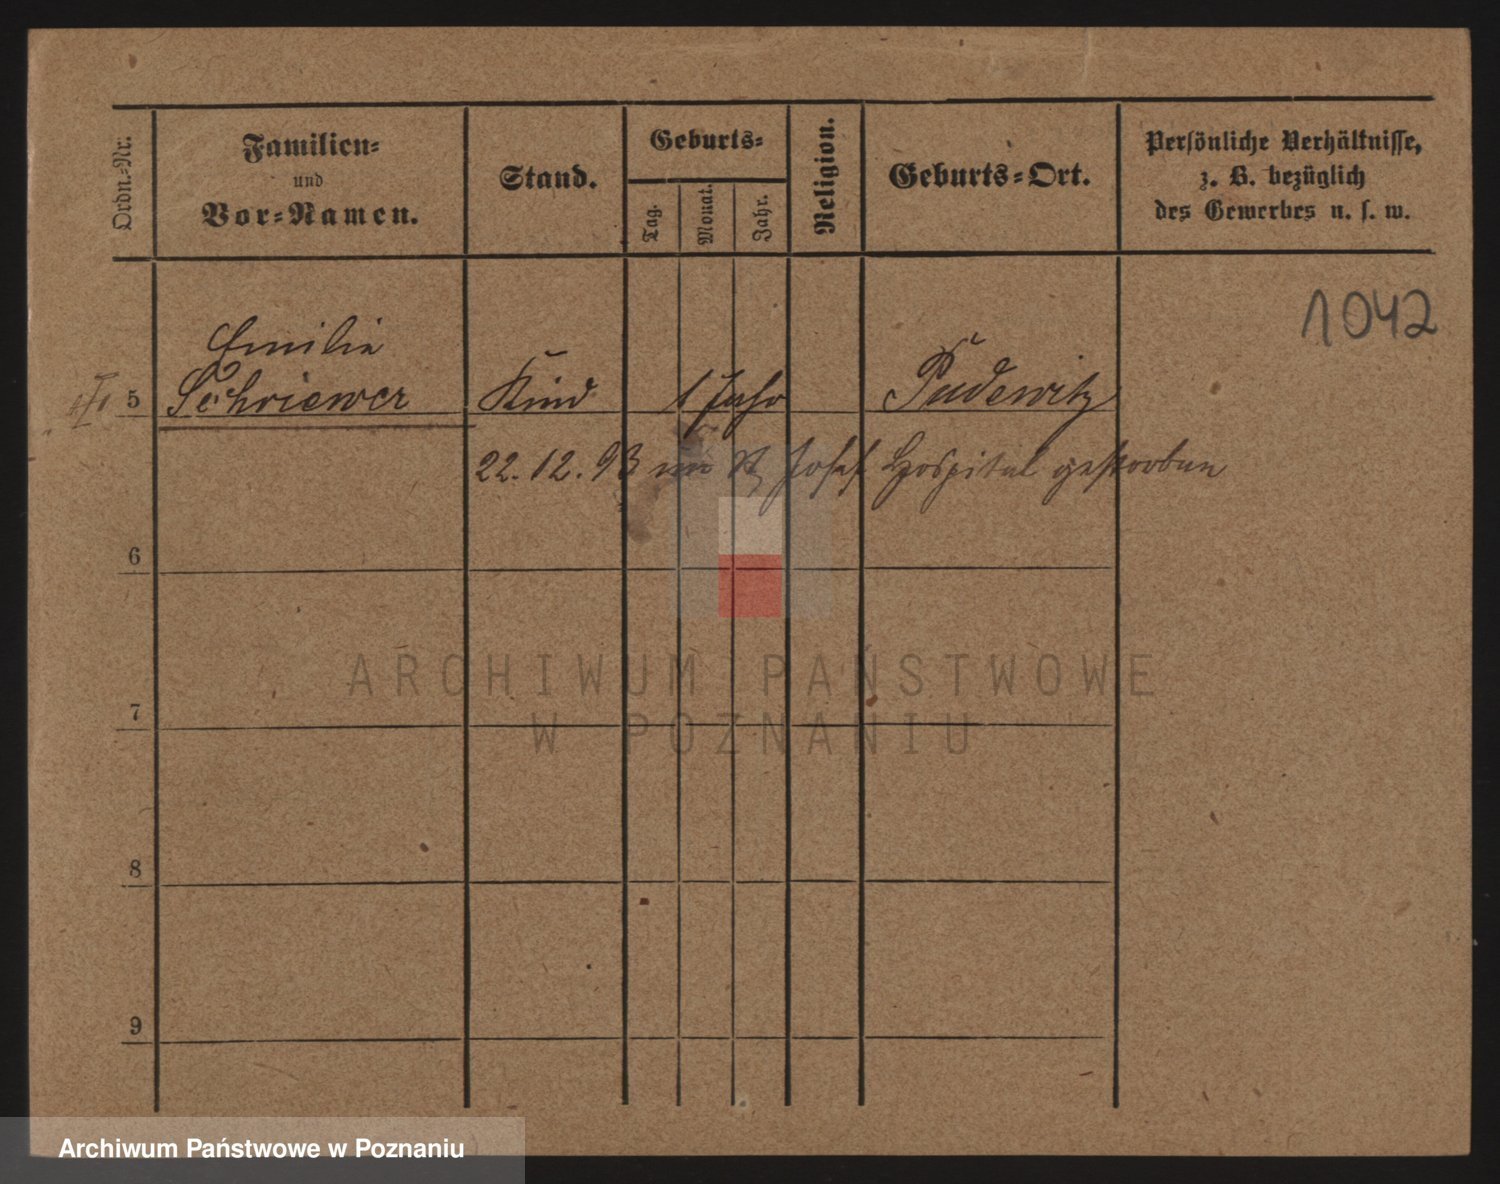 Ordn.-Nr.
Familien-
und
Vor-Namen.
Stand.
Geburts-
Tag.
Monat.
Jahr.
Religion.
Geburts-Ort.
Persönliche Verhältnisse,
z. B. bezüglich
des Gewerbes u. s. w.
1042
Emilie
5 Schriewer Kind 1 Jahr Pudewitz
22.12.93 im St Josef Hospital gestorben
6
7
8
9
ARCHIWUM PAŃSTWOWE
W POZNANIU
Archiwum Państwowe w Poznaniu